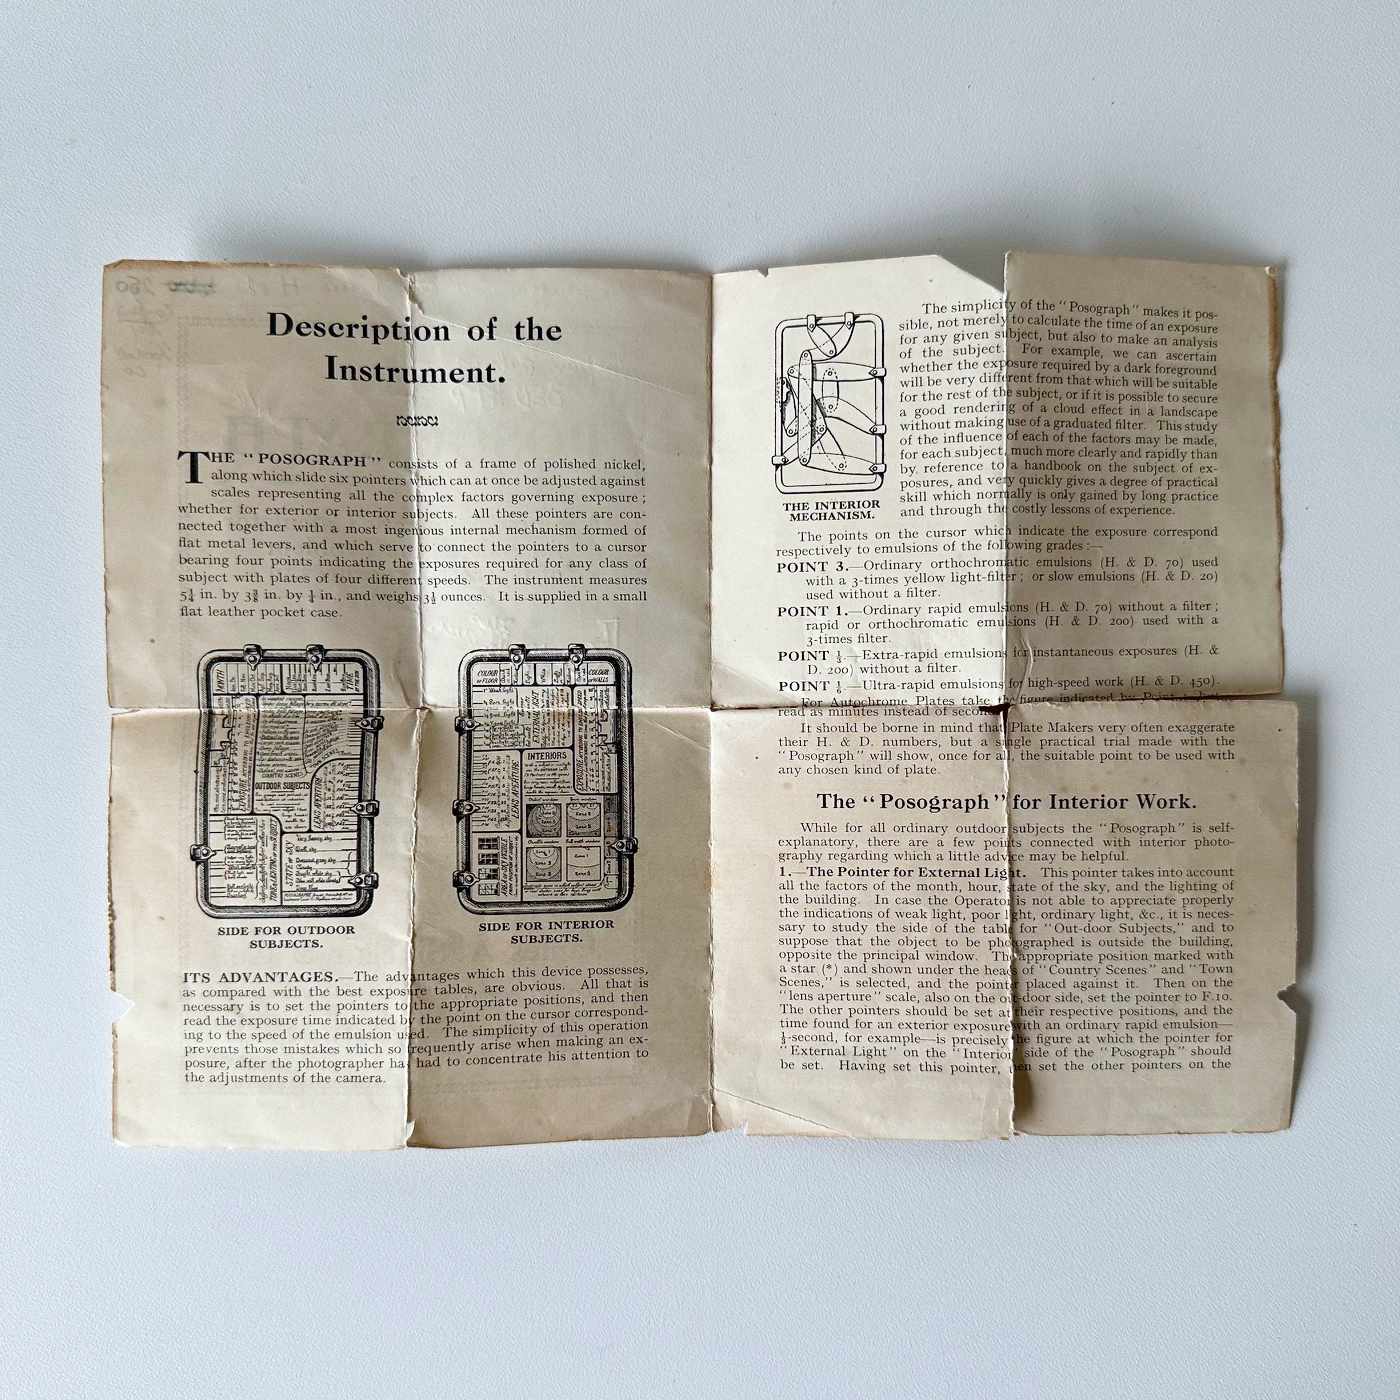 Description of the
Instrument.
THE "POSOGRAPH" consists of a frame of polished nickel,
along which slide six pointers which can at once be adjusted against
scales representing all the complex factors governing exposure;
whether for exterior or interior subjects. All these pointers are con-
nected together with a most ingenious internal mechanism formed of
flat metal levers, and which serve to connect the pointers to a cursor
bearing four points indicating the exposures required for any class of
subject with plates of four different speeds. The instrument measures
5¼ in. by 3⅜ in. by ¼ in., and weighs 3½ ounces. It is supplied in a small
flat leather pocket case.
MONTH
OUTDOOR SUBJECTS
LENS APERTURE
STATE OF SKY
SIDE FOR OUTDOOR
SUBJECTS.
COLOUR
OF FLOOR
COLOUR
OF WALLS
EXTERNAL LIGHT
INTERIORS
LENS APERTURE
SIDE FOR INTERIOR
SUBJECTS.
ITS ADVANTAGES.—The advantages which this device possesses,
as compared with the best exposure tables, are obvious. All that is
necessary is to set the pointers to the appropriate positions, and then
read the exposure time indicated by the point on the cursor correspond-
ing to the speed of the emulsion used. The simplicity of this operation
prevents those mistakes which so frequently arise when making an ex-
posure, after the photographer has had to concentrate his attention to
the adjustments of the camera.
THE INTERIOR
MECHANISM.
The simplicity of the "Posograph" makes it pos-
sible, not merely to calculate the time of an exposure
for any given subject, but also to make an analysis
of the subject. For example, we can ascertain
whether the exposure required by a dark foreground
will be very different from that which will be suitable
for the rest of the subject, or if it is possible to secure
a good rendering of a cloud effect in a landscape
without making use of a graduated filter. This study
of the influence of each of the factors may be made,
for each subject, much more clearly and rapidly than
by reference to a handbook on the subject of ex-
posures, and very quickly gives a degree of practical
skill which normally is only gained by long practice
and through the costly lessons of experience.
The points on the cursor which indicate the exposure correspond
respectively to emulsions of the following grades:—
POINT 3.—Ordinary orthochromatic emulsions (H. & D. 70) used
with a 3-times yellow light-filter; or slow emulsions (H. & D. 20)
used without a filter.
POINT 1.—Ordinary rapid emulsions (H. & D. 70) without a filter;
rapid or orthochromatic emulsions (H. & D. 200) used with a
3-times filter.
POINT ⅓.—Extra-rapid emulsions for instantaneous exposures (H. &
D. 200) without a filter.
POINT ⅙.—Ultra-rapid emulsions for high-speed work (H. & D. 450).
For Autochrome Plates take the figure indicated by Point
read as minutes instead of seconds
It should be borne in mind that Plate Makers very often exaggerate
their H. & D. numbers, but a single practical trial made with the
"Posograph" will show, once for all, the suitable point to be used with
any chosen kind of plate.
The "Posograph" for Interior Work.
While for all ordinary outdoor subjects the "Posograph" is self-
explanatory, there are a few points connected with interior photo-
graphy regarding which a little advice may be helpful.
1.—The Pointer for External Light. This pointer takes into account
all the factors of the month, hour, state of the sky, and the lighting of
the building. In case the Operator is not able to appreciate properly
the indications of weak light, poor light, ordinary light, &c., it is neces-
sary to study the side of the table for "Out-door Subjects," and to
suppose that the object to be photographed is outside the building,
opposite the principal window. The appropriate position marked with
a star (*) and shown under the heads of "Country Scenes" and "Town
Scenes," is selected, and the pointer placed against it. Then on the
"lens aperture" scale, also on the out-door side, set the pointer to F.10.
The other pointers should be set at their respective positions, and the
time found for an exterior exposure with an ordinary rapid emulsion—
½-second, for example—is precisely the figure at which the pointer for
"External Light" on the "Interior" side of the "Posograph" should
be set. Having set this pointer, then set the other pointers on the